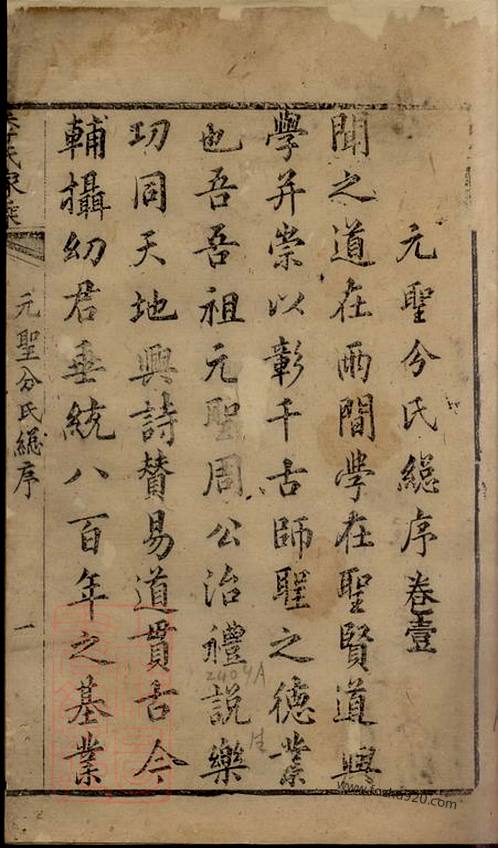 元聖分氏總序卷壹
聞之道在兩間學在聖賢道與
學并崇以彰千古師聖之德業
也吾吾祖元聖周公治禮說樂
功同天地興詩贊易道貫古今
輔攝幼君垂統八百年之基業
元聖分氏總序
一
2404A
www.fosha920.com